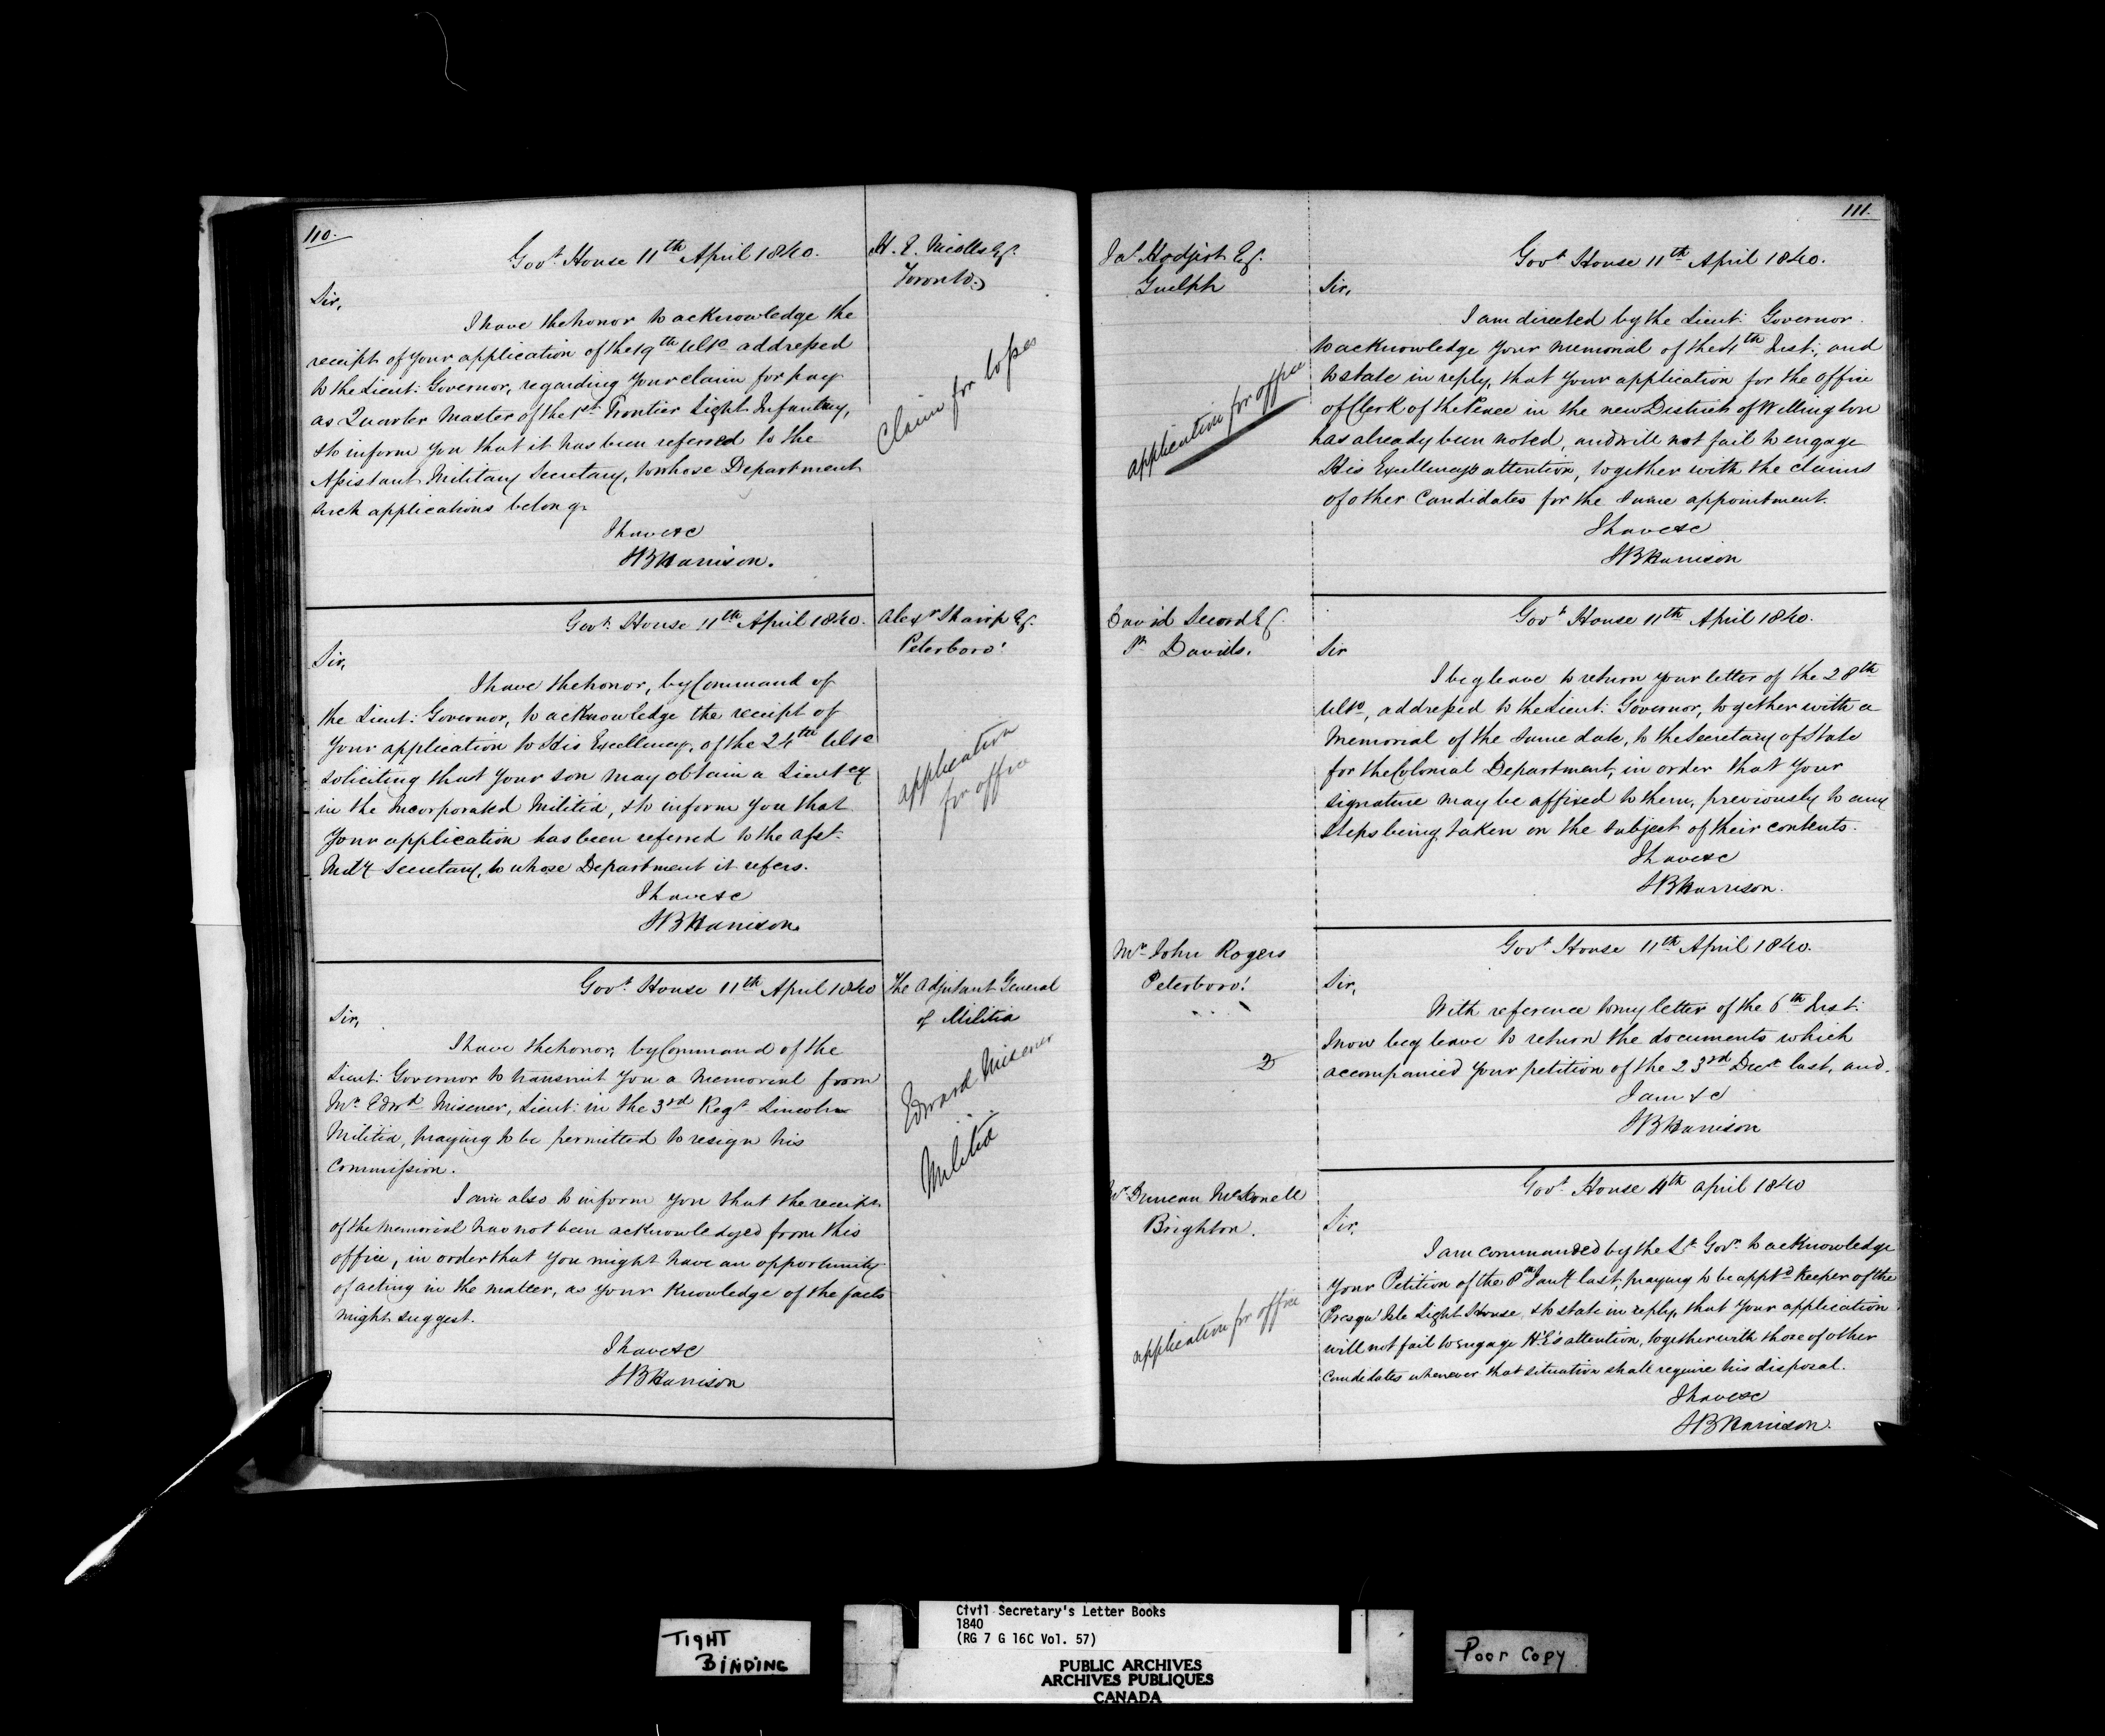 110.
Govt. House 11th April 1840.
H. E. Nicolls Esq.
Toronto.
Sir,
I have the honor to acknowledge the
receipt of your application of the 19th Ulto addressed
to the Lieut: Governor, regarding your claim for pay
as Quarter Master of the 1st Frontier Light Infantry,
& to inform you that it has been referred to the
Assistant Military Secretary, to whose Department
such applications belong.
I have &c
SB Harrison.
Claim for losses
Govt. House 11th April 1840.
Alexr Sharp Esq.
Peterboro'
Sir,
I have the honor, by Command of
the Lieut: Governor, to acknowledge the receipt of
your application to His Excellency, of the 24th Ulto
soliciting that your son may obtain a Lieutcy
in the Incorporated Militia, & to inform you that
your application has been referred to the Asst.
Mily Secretary, to whose Department it refers.
I have &c
SB Harrison.
application
for office
Govt. House 11th April 1840
The Adjutant General
of Militia
Sir,
I have the honor, by Command of the
Lieut: Governor to transmit you a memorial from
Mr Edwd Misener, Lieut: in the 3rd Regt Lincoln
Militia, praying to be permitted to resign his
Commission.
I am also to inform you that the receipt
of the memorial has not been acknowledged from this
office, in order that you might have an opportunity
of acting in the matter, as your knowledge of the facts
might suggest.
I have &c
SB Harrison
Edward Misener
Militia
111.
Jas. Hodjert Esq.
Guelph
Govt House 11th April 1840.
Sir,
I am directed by the Lieut: Governor
to acknowledge your memorial of the 4th Inst:, and
to state in reply, that your application for the office
of Clerk of the Peace in the new District of Wellington
has already been noted, and will not fail to engage
His Excellency's attention, together with the claims
of other Candidates for the same appointment.
I have &c
SB Harrison
application for office
David Secord Esq.
St Davids.
Govt House 11th April 1840.
Sir
I beg leave to return your letter of the 28th
Ulto, addressed to the Lieut: Governor, together with a
Memorial of the same date, to the Secretary of State
for the Colonial Department, in order that your
signature may be affixed to them, previously to any
steps being taken on the subject of their contents.
I have &c
SB Harrison.
Mr John Rogers
Peterboro'.
Govt House 11th April 1840.
Sir,
With reference to my letter of the 6th Inst:
I now beg leave to return the documents which
accompanied your petition of the 23rd Decr last, and.
I am &c
SB Harrison
Mr Duncan McDonell
Brighton.
Govt. House 11th April 1840
Sir,
I am commanded by the Lt Govr. to acknowledge
your Petition of the 8th Jany last, praying to be apptd Keeper of the
Presqu' Isle Light House, & to state in reply, that your application
will not fail to engage H.E's attention, together with those of other
Candidates whenever that situation shall require his disposal.
I have &c
SB Harrison.
application for office
TIGHT
BINDING
Civil Secretary's Letter Books
1840
(RG 7 G 16C Vol. 57)
PUBLIC ARCHIVES
ARCHIVES PUBLIQUES
CANADA
Poor Copy